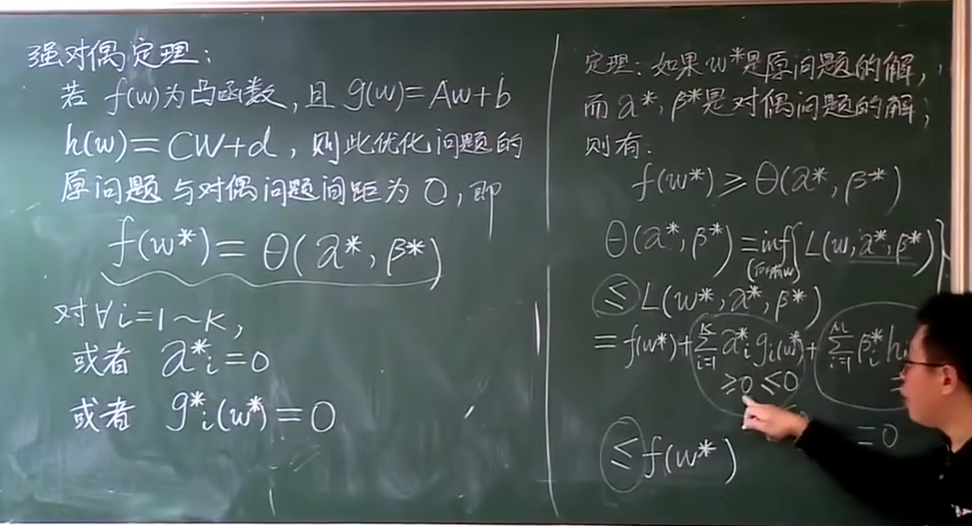 强对偶定理:
若 f(w)为凸函数,且 g(w)=Aw+b
h(w)=CW+d,则此优化问题的
原问题与对偶问题间距为0,即
f(w*)=θ(α*,β*)
对∀i=1~K,
或者 α*ᵢ=0
或者 g*ᵢ(w*)=0
定理:如果w*是原问题的解,
而α*,β*是对偶问题的解,
则有:
f(w*)≥θ(α*,β*)
θ(α*,β*)=inf{L(w,α*,β*)}
≤L(w*,α*,β*)
=f(w*)+∑ᵢ₌₁ᴷ α*ᵢgᵢ(w*)+∑ᵢ₌₁ᴹ β*ᵢh
≥0 ≤0
=0
≤f(w*)